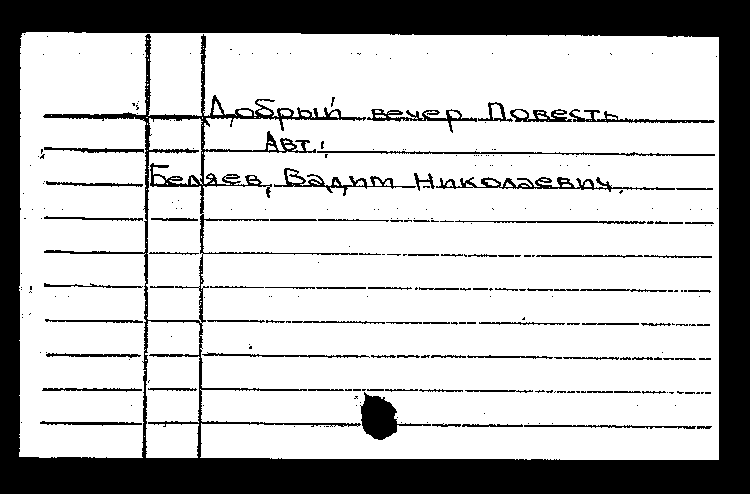 Добрый вечер Повесть
Авт.:
Беляев, Вадим Николаевич.